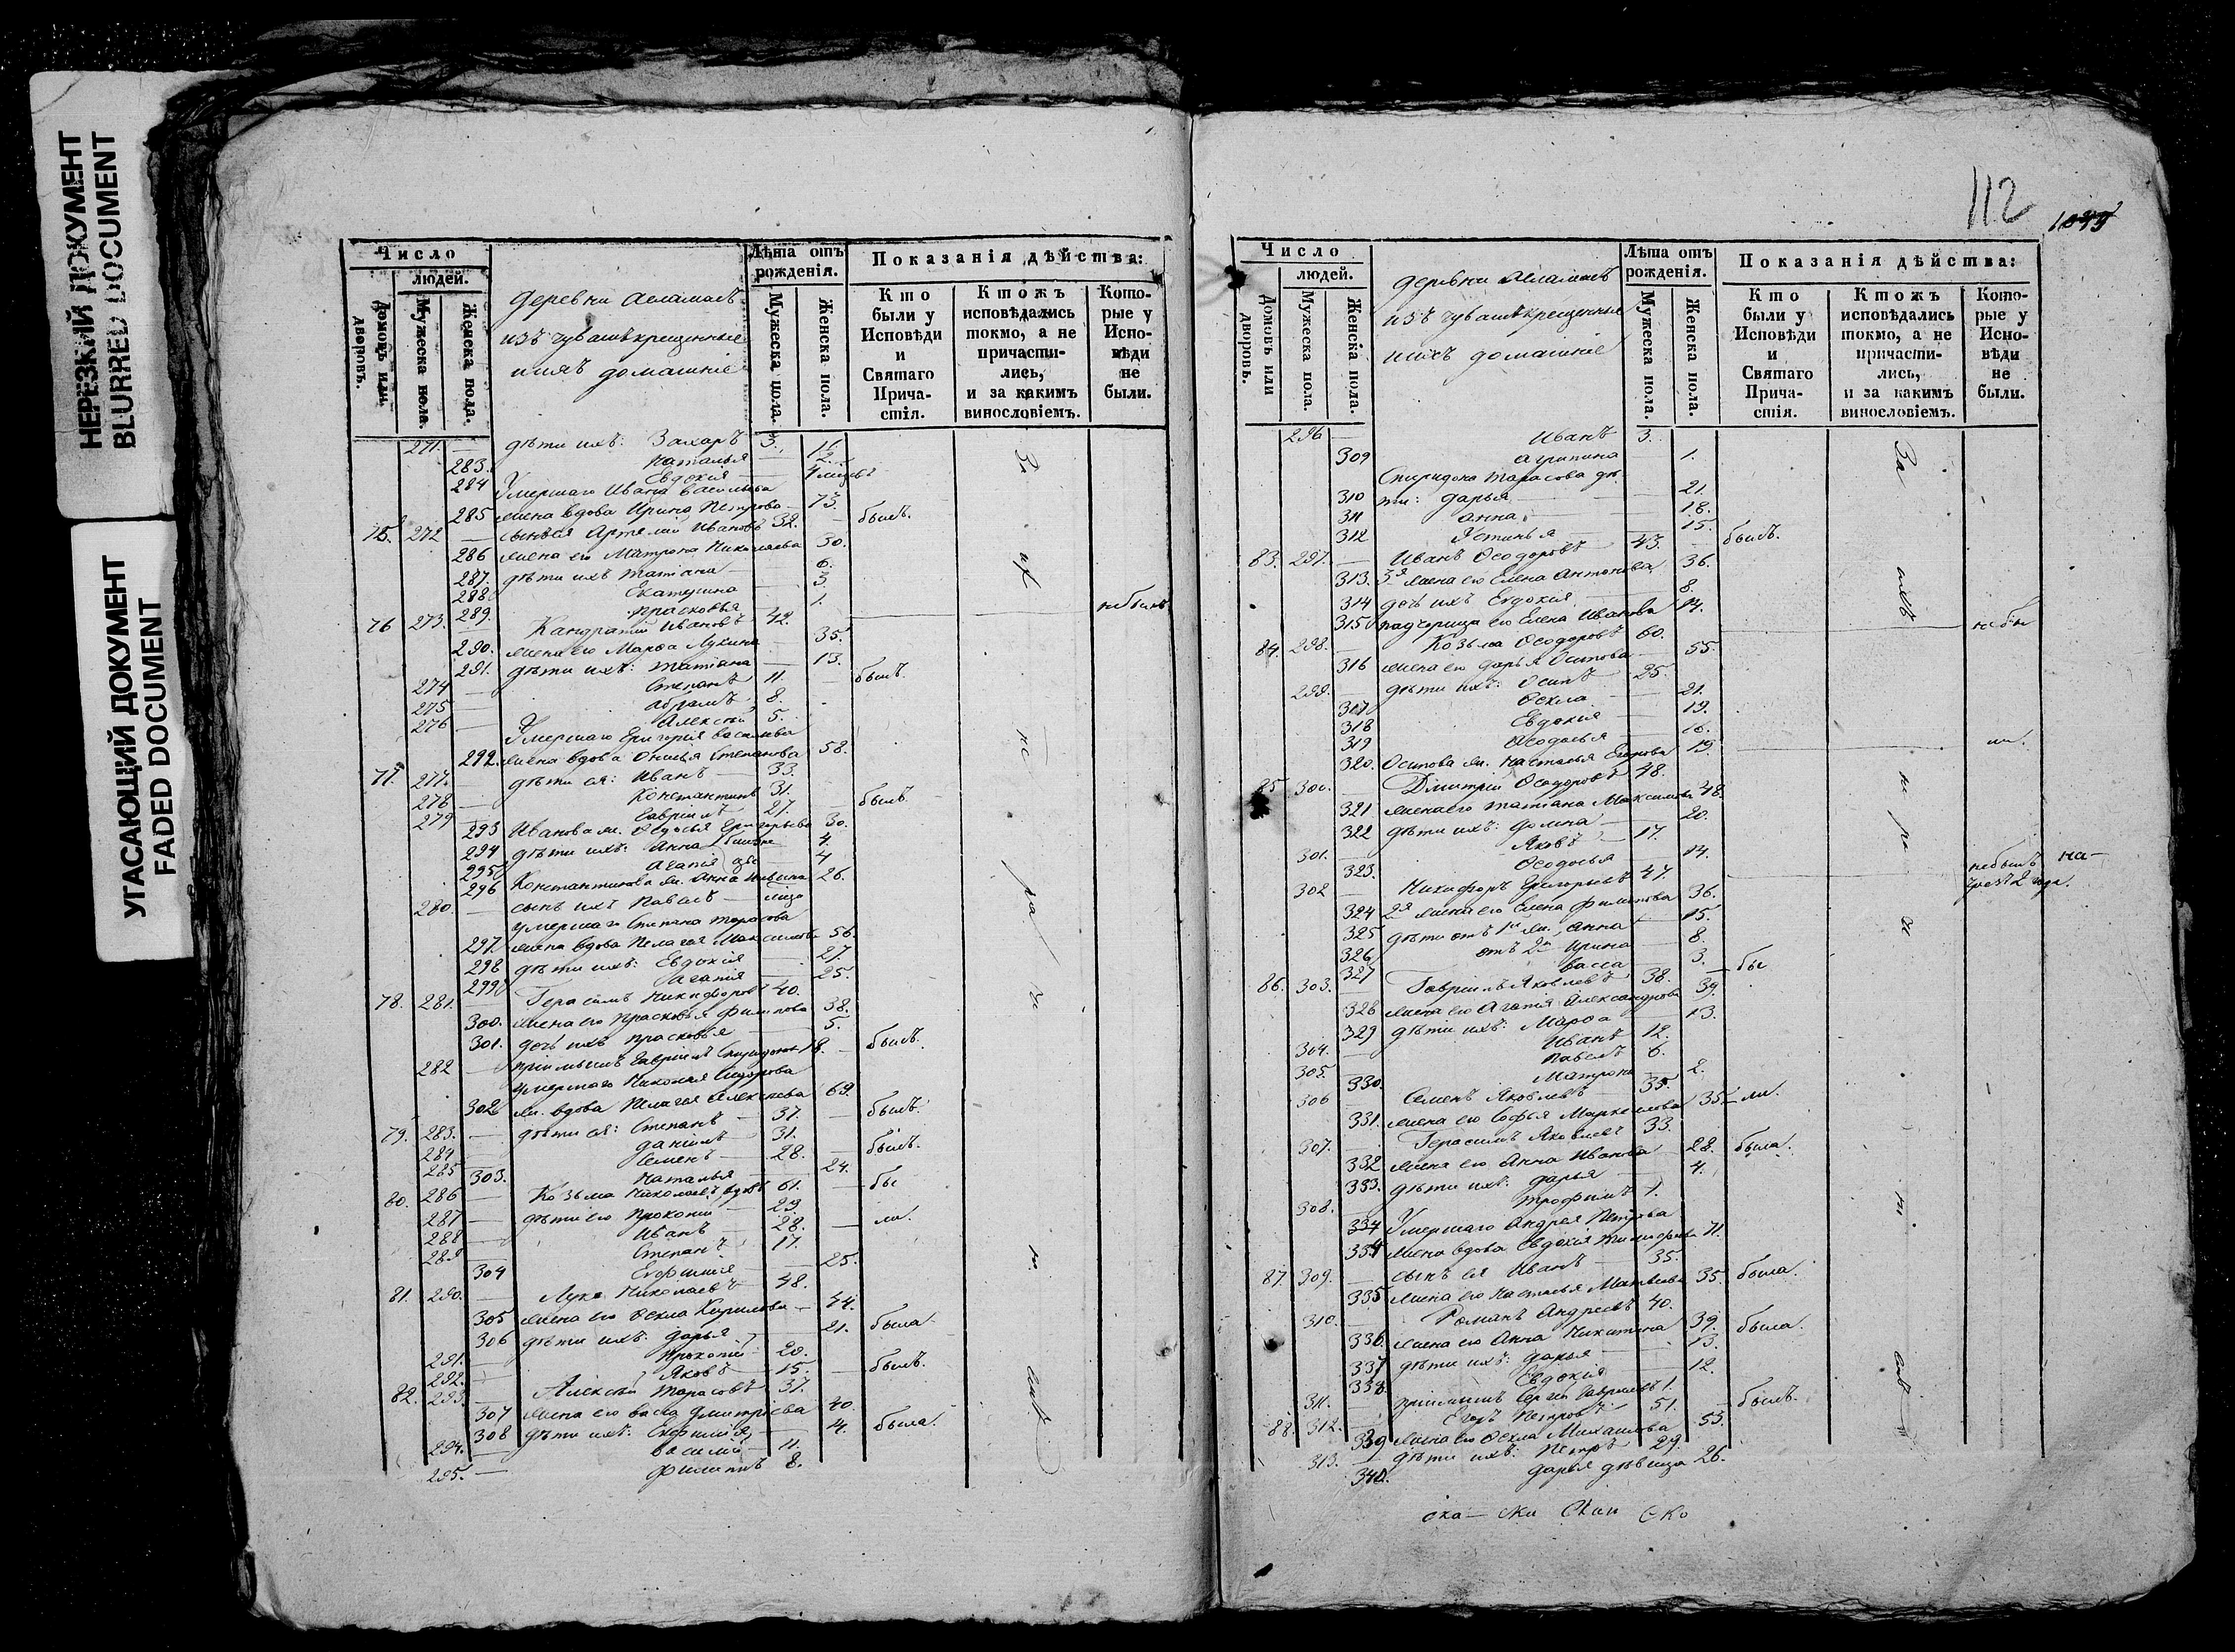 НЕРЕЗКИЙ ДОКУМЕНТ
BLURRED DOCUMENT
УГАСАЮЩИЙ ДОКУМЕНТ
FADED DOCUMENT
Число
людей.
Домовъ или дворовъ.
Мужеска пола.
Женска пола.
деревни
изъ чувашъ крещенные
и ихъ домашніе
Лѣта отъ рожденія.
Мужеска пола.
Женска пола.
Показанія дѣйства:
Кто были у Исповѣди и Святаго Причастія.
Ктожъ исповѣдались токмо, а не причастились, и за какимъ винословіемъ.
Которые у Исповѣди не были.
271. — дѣти ихъ: Захаръ 3.
283. Наталья —
284 Евдокія —
Умершаго Ивана Васильева
285 жена вдова Ирина Петрова 73.
75. 272 — сынъ ея Артемій Ивановъ 32. — былъ.
286 жена его Матрона Николаева 30.
287. дѣти ихъ Татіана — 6.
288. Екатерина 3.
289. Прасковья 1.
76 273. — Кандратій Ивановъ 42. не былъ
290. жена его Марѳа Лукина 35.
291. дѣти ихъ: Татіана — 13.
274 — Степанъ 11. — былъ.
275 — Абрамъ 8.
276 — Алексѣй 5.
Умершаго Григорія Васильева
292. жена вдова Степанова 58.
77. 277. — дѣти ея: Иванъ — 33.
278 — Константинъ 31.
279 — Гавріилъ 27. — былъ.
293 Иванова ж. Ѳедосья Григорьева 30.
294 дѣти ихъ: Анна 4.
295 Агаѳія 4
296 Константинова ж. Анна 26.
280. — сынъ ихъ Павелъ —
умершаго Степана Тарасова
297. жена вдова Пелагея Максимова 56.
298 дѣти ихъ: Евдокія — 27.
299 Агаѳія — 25.
78. 281. — Герасимъ Никифоровъ 40.
300. жена его Прасковья Филипова 38.
301. дочь ихъ Прасковья — 5.
282 — пріимышъ Гавріилъ Спиридоновъ 18. — былъ.
умершаго Николая
302 ж. вдова Пелагея Алексѣева 69.
79. 283. — дѣти ея: Степанъ — 37. — былъ.
284 — Данилъ 31.
285 — Семенъ — 28. — былъ.
303. Наталья — 24.
80. 286 — Козьма Николаевъ, вдовъ 61. — бы
287 — дѣти его Прокопій — 29.
288 — Иванъ — 28. — ли.
289 — Степанъ 17.
304 Евфимія — 25.
81. 290. — Лука Николаевъ 48.
305 жена его Ѳекла Кирилова — 44.
306 дѣти ихъ: Дарья — 21. была.
291. — Прокопій — 20.
292. — Яковъ — 15. — былъ.
82. 293. — Алексѣй Тарасовъ 37.
307 жена его Васса Дмитріева 40.
308 дѣти ихъ: Евфимія 14. была.
294. — Василій — 11.
295. — Филиппъ 8.
За
их
не
ра
ні
112
Число
людей.
Домовъ или дворовъ.
Мужеска пола.
Женскіа пола.
деревни
изъ чувашъ крещенные
и ихъ домашніе
Лѣта отъ рожденія.
Мужеска пола.
Женска пола.
Показанія дѣйства:
Кто были у Исповѣди и Святаго Причастія.
Ктожъ исповѣдались токмо, а не причастились, и за какимъ винословіемъ.
Которые у Исповѣди не были.
296 — Иванъ 3.
309 Агрипина — 1.
Спиридона Тарасова дѣ-
310 ти: Дарья — 21.
311 Анна 18.
312 Устинья — 15.
83. 297. — Иванъ Ѳеодоровъ — 43. былъ.
313. 3я жена его Елена Антонова 36.
314 дочь ихъ Евдокія — 8.
315 падчерица его Елена Иванова 14.
84. 298. — Козьма Ѳеодоровъ 60. не бы
316 жена его Дарья Осипова 55.
299. — дѣти ихъ: Осипъ — 25.
317 Ѳекла — 21.
318 Евдокія — 19.
319 Ѳеодосья 16.
320. Осипова ж. Настасья Егорова 19. ли.
85 300. — Дмитрій Ѳеодоровъ 48.
321 жена его Татіана Максимова 48.
322 дѣти ихъ: Домна — 20.
301. — Яковъ — 17.
323. Ѳеодосья 14.
302 — Никифоръ Григорьевъ 47. не былъ
324 2я жена его Елена Филипова 36.
325 дѣти отъ 1й ж. Анна 15.
326 отъ 2й Ирина — 8.
327 Васса — 3.
86. 303. — Гавріилъ Яковлевъ — 38. — бы
328 жена его Агаѳія Александрова 39.
329 дѣти ихъ: Марѳа — 13.
304. — Иванъ 12.
305. — Павелъ 6.
330. Матрона — 2.
306 Семенъ Яковлевъ — 35.
331. жена его Софья 35. — ли.
307. — Герасимъ Яковлевъ 33.
332 жена его Анна Иванова 28. была.
333. дѣти ихъ: Дарья — 4.
308. — Трофимъ 1.
334 Умершаго Андрея Петрова
334 жена вдова Евдокія 71.
87. 309. — сынъ ея Иванъ — 35.
335 жена его Настасья Матвѣева 35. была.
310. — Романъ Андреевъ 40.
336. жена его Анна Никитина 39. была.
337 дѣти ихъ: Дарья — 13.
338 Евдокія — 12.
311. — пріимышъ Сергѣй Гавриловъ 1.
88. 312. — Егоръ Петровъ 51. — былъ.
339 жена его Ѳекла Михайлова 53.
313. — дѣти ихъ: Петръ — 29.
340. Дарья дѣвица 26.
За
ихъ
не
ра